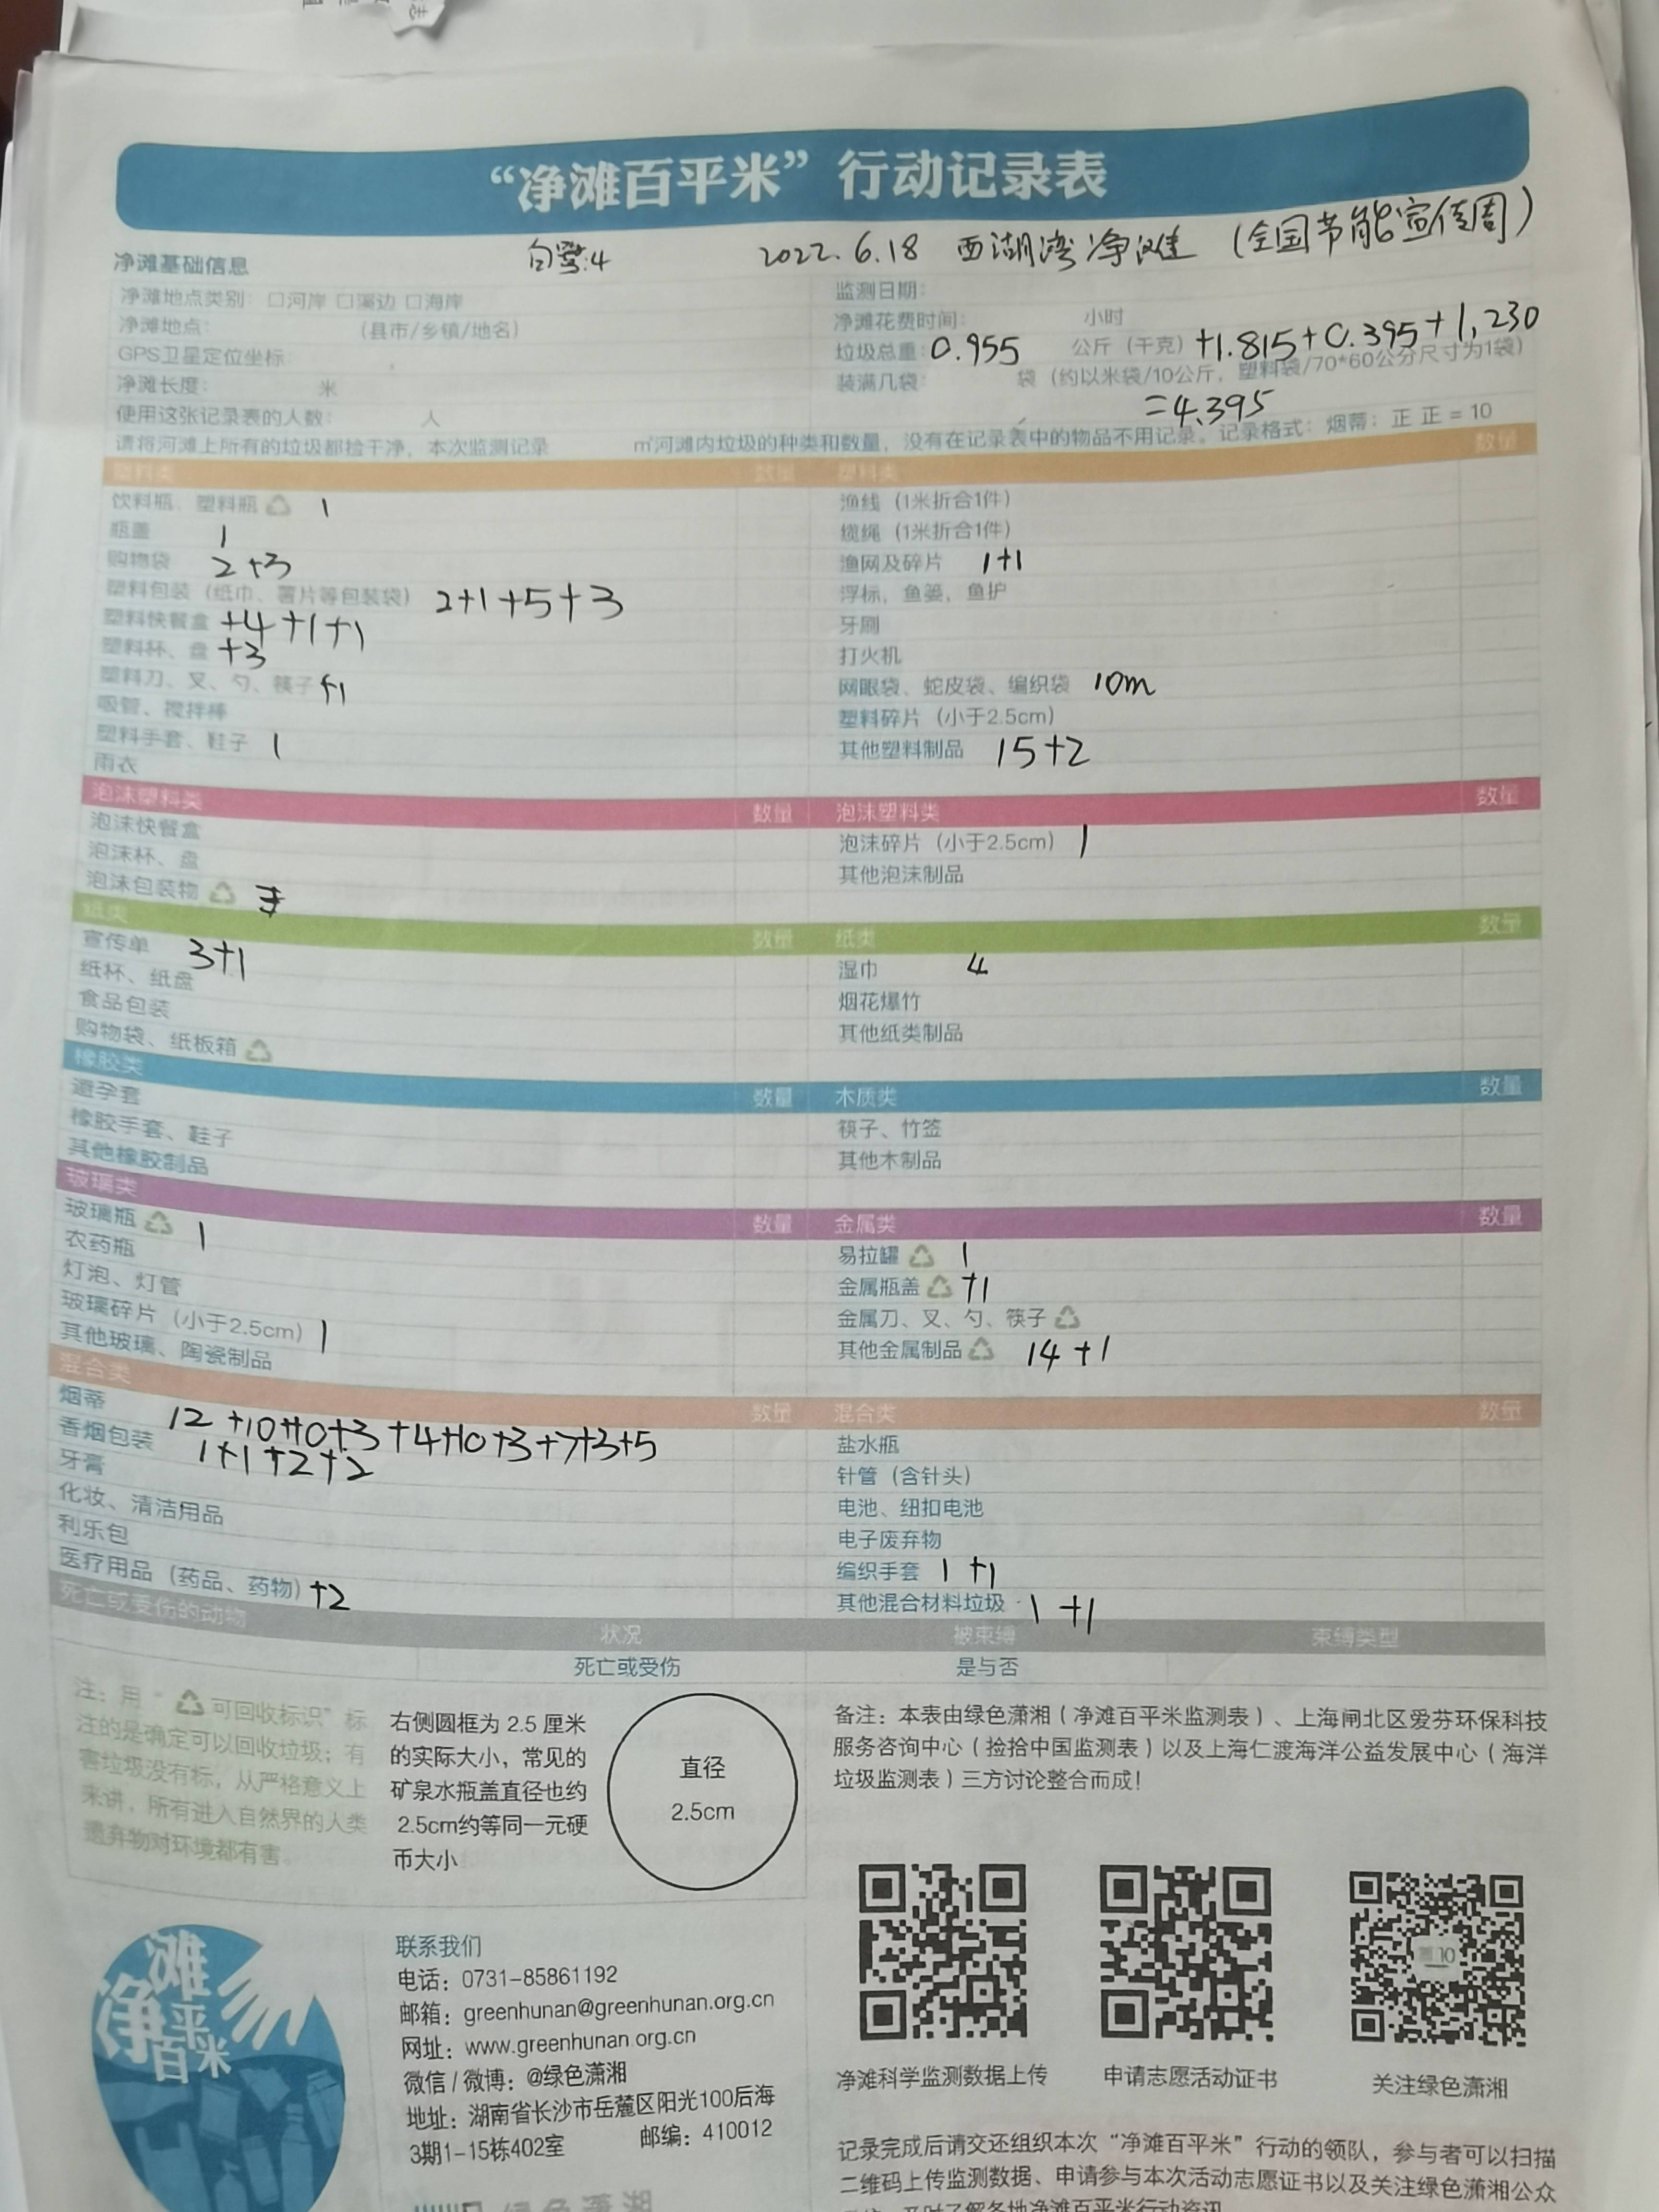 “净滩百平米”行动记录表
2022.6.18 西湖湾净滩（全国节能宣传周）
净滩基础信息
净滩地点类别：□河岸 □溪边 □海岸
净滩地点： （县市/乡镇/地名）
GPS卫星定位坐标：
净滩长度： 米
使用这张记录表的人数： 人
监测日期：
净滩花费时间： 小时
垃圾总重：0.955 公斤（千克）+1.815+0.395+1,230
装满几袋： 袋（约以米袋/10公斤，塑料袋/70*60公分尺寸为1袋）
=4.395
请将河滩上所有的垃圾都捡干净，本次监测记录 ㎡河滩内垃圾的种类和数量，没有在记录表中的物品不用记录。记录格式：烟蒂：正 正 = 10
塑料类 数量
饮料瓶、塑料瓶 1
瓶盖 1
购物袋 2+3
塑料包装（纸巾、薯片等包装袋） 2+1+5+3
塑料快餐盒 +4+1+1
塑料杯、盘 +3
塑料刀、叉、勺、筷子 +1
吸管、搅拌棒
塑料手套、鞋子 1
雨衣
塑料类 数量
渔线（1米折合1件）
缆绳（1米折合1件）
渔网及碎片 1+1
浮标，鱼篓，鱼护
牙刷
打火机
网眼袋、蛇皮袋、编织袋 10m
塑料碎片（小于2.5cm）
其他塑料制品 15+2
泡沫塑料类 数量
泡沫快餐盒
泡沫杯、盘
泡沫包装物
泡沫塑料类 数量
泡沫碎片（小于2.5cm） 1
其他泡沫制品
纸类 数量
宣传单 3+1
纸杯、纸盘
食品包装
购物袋、纸板箱
纸类 数量
湿巾 4
烟花爆竹
其他纸类制品
橡胶类 数量
避孕套
橡胶手套、鞋子
其他橡胶制品
木质类 数量
筷子、竹签
其他木制品
玻璃类 数量
玻璃瓶 1
农药瓶
灯泡、灯管
玻璃碎片（小于2.5cm） 1
其他玻璃、陶瓷制品
金属类 数量
易拉罐 1
金属瓶盖 +1
金属刀、叉、勺、筷子
其他金属制品 14+1
混合类 数量
烟蒂 12+10+10+3+4+10+3+7+3+5
香烟包装 1+1+2+2
牙膏
化妆、清洁用品
利乐包
医疗用品（药品、药物）+2
混合类 数量
盐水瓶
针管（含针头）
电池、纽扣电池
电子废弃物
编织手套 1+1
其他混合材料垃圾 1+1
死亡或受伤的动物 状况 被束缚 束缚类型
死亡或受伤 是与否
注：用“ 可回收标识”标
注的是确定可以回收垃圾；有
害垃圾没有标，从严格意义上
来讲，所有进入自然界的人类
遗弃物对环境都有害。
右侧圆框为 2.5 厘米
的实际大小，常见的
矿泉水瓶盖直径也约
2.5cm约等同一元硬
币大小
直径
2.5cm
备注：本表由绿色潇湘（净滩百平米监测表）、上海闸北区爱芬环保科技
服务咨询中心（捡拾中国监测表）以及上海仁渡海洋公益发展中心（海洋
垃圾监测表）三方讨论整合而成！
净滩百平米
联系我们
电话：0731-85861192
邮箱：greenhunan@greenhunan.org.cn
网址：www.greenhunan.org.cn
微信/微博：@绿色潇湘
地址：湖南省长沙市岳麓区阳光100后海
3期1-15栋402室 邮编：410012
净滩科学监测数据上传
申请志愿活动证书
关注绿色潇湘
记录完成后请交还组织本次“净滩百平米”行动的领队，参与者可以扫描
二维码上传监测数据、申请参与本次活动志愿证书以及关注绿色潇湘公众